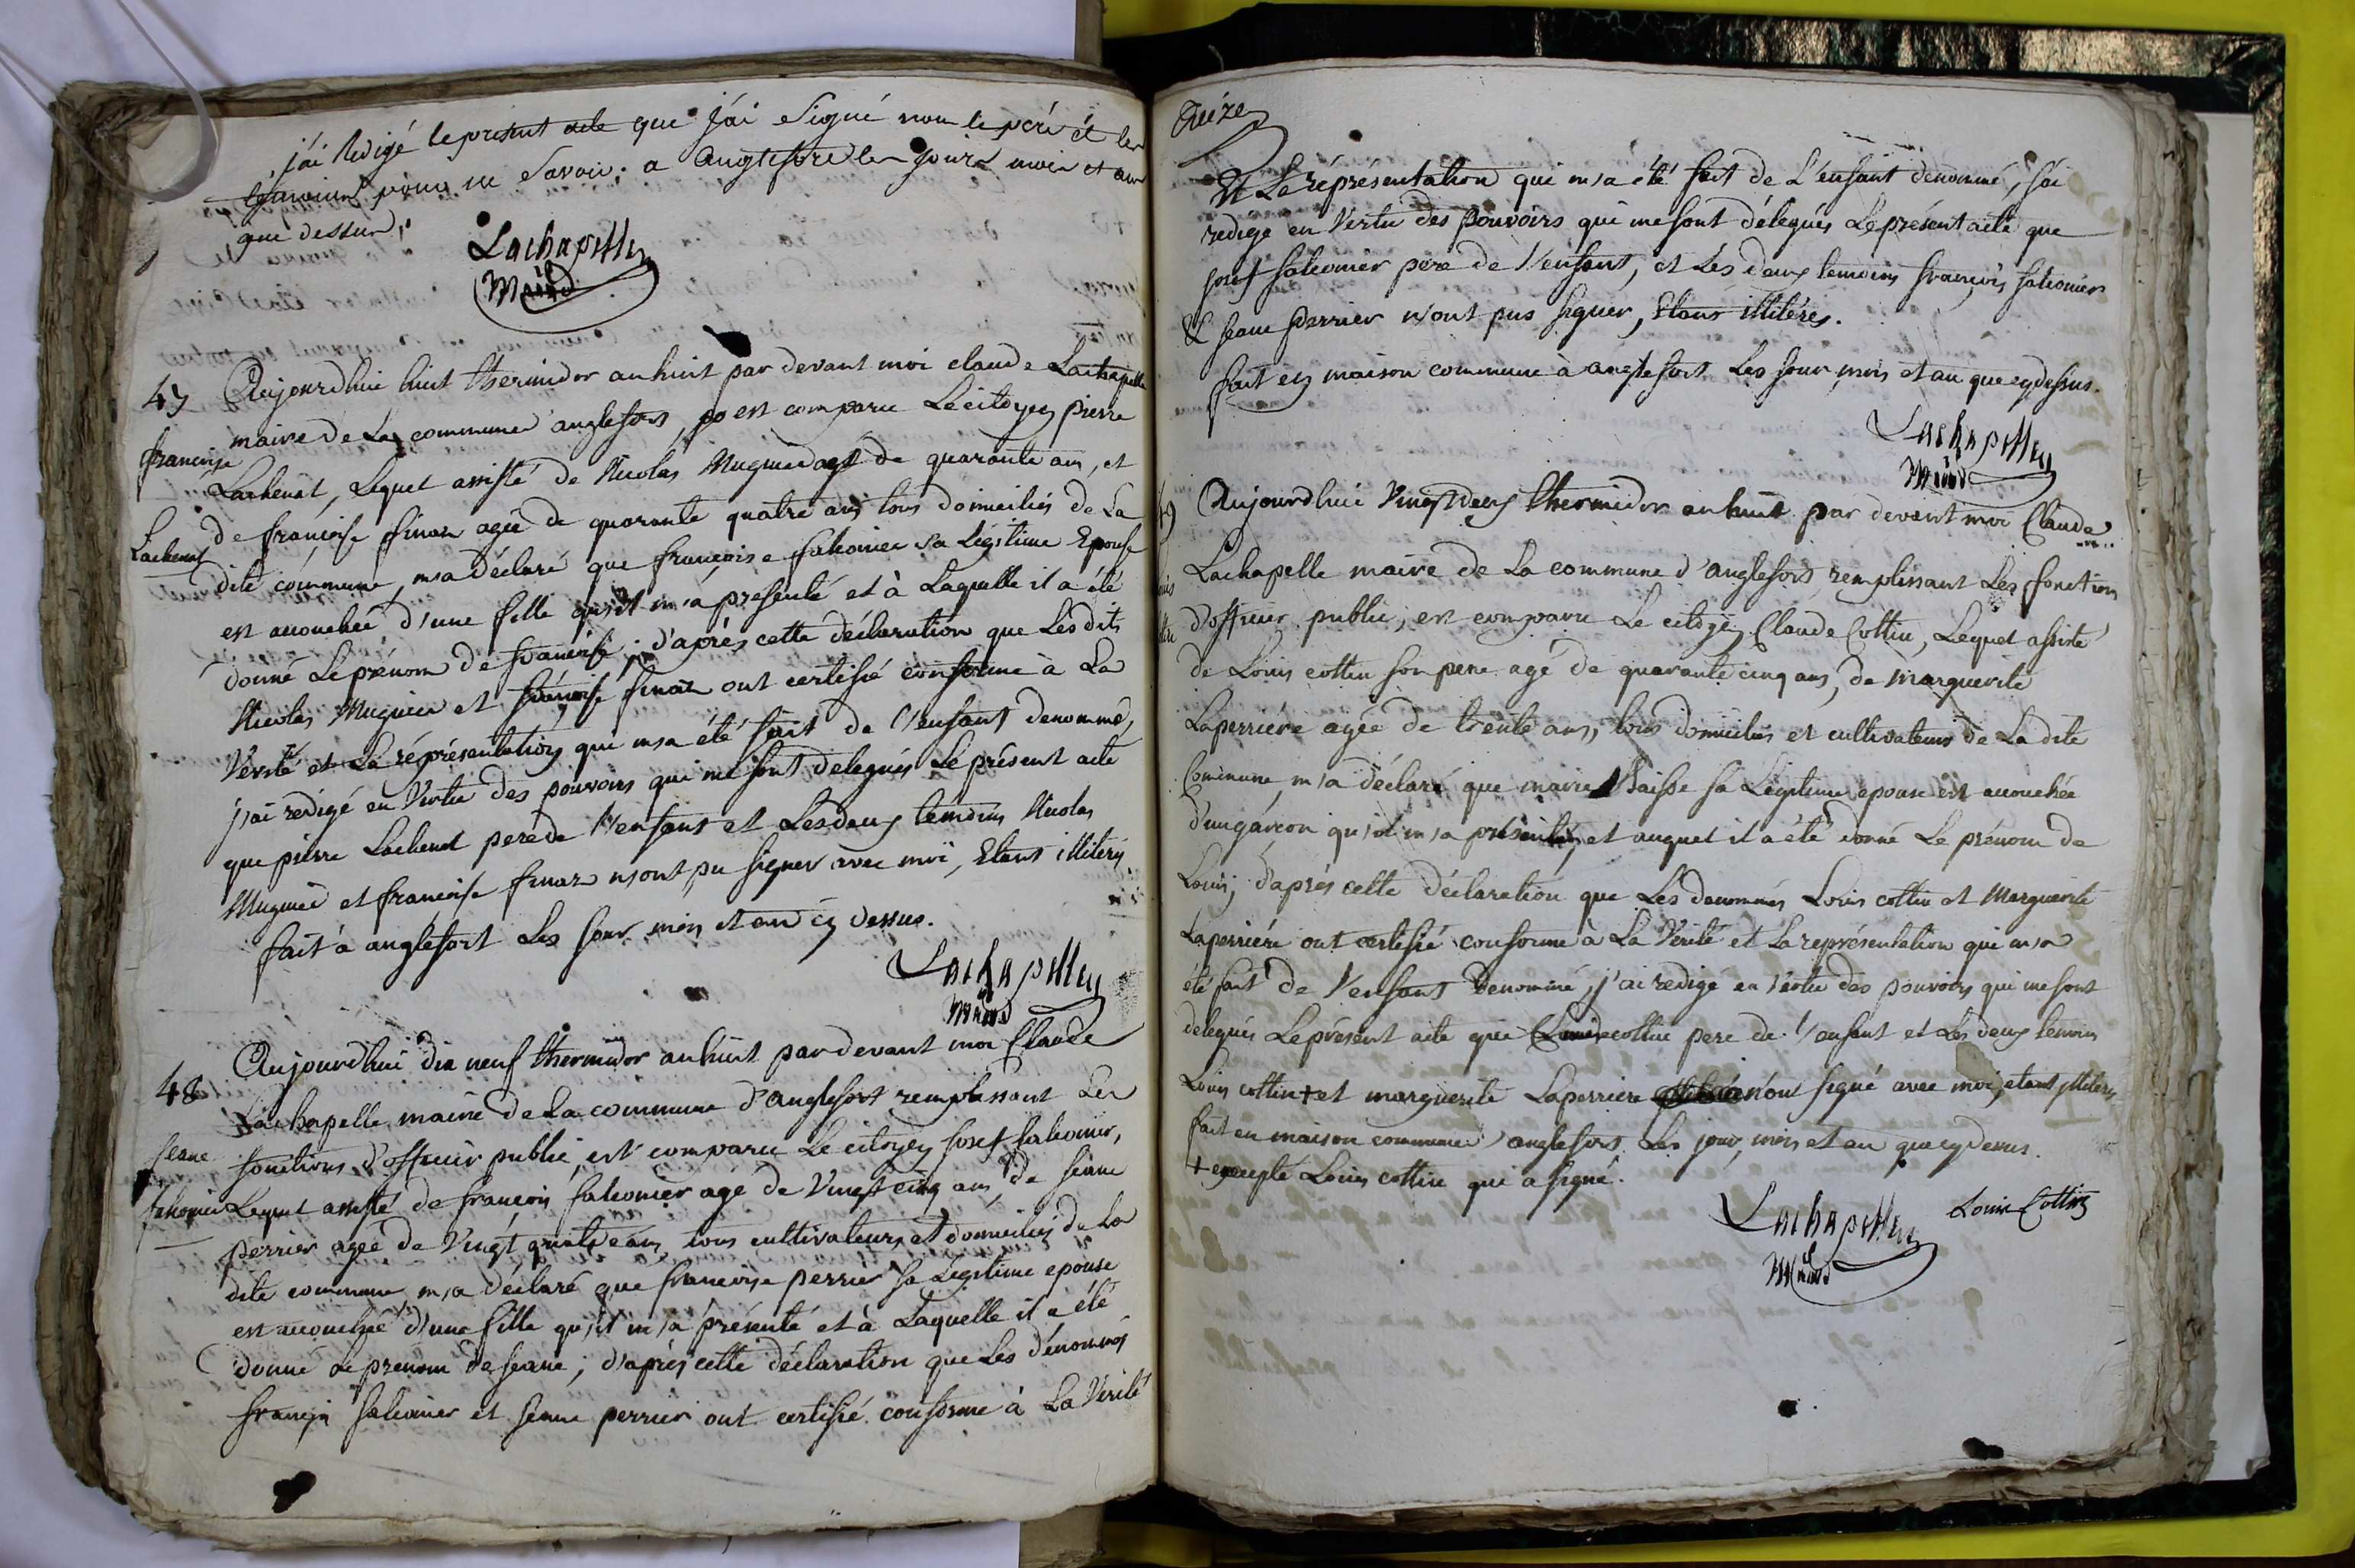 j'ai redigé le present acte que j'ai signé non le peré et les
temoins pour ne savoir; a Anglefore les jours mois et an
que dessus;
Lachapelle
Maire
47
francoise
Lachenat
Aujourdhui huit thermidor an huit par devant moi claude Lachapelle
maire de La commune d'anglefort, est comparu Le citoyen pierre
Lachenat, Lequel assisté de Nicolas Muguier agé de quarante ans, et
de francoise finaz agée de quarante quatre ans tous domiciliés de La
dite commune, m'a déclaré que francoise falconier sa Légitime Epouse
est accouchée d'une fille qu'il m'a presenté et à Laquelle il a été
donné Le prénom de francoise; d'aprés cette déclaration que Lesdits
Nicolas Muguier et francoise finaz ont certifié conforme à La
Vérité et La représentation qui m'a été fait de l'enfant denommé,
j'ai redigé en Vertu des pouvoirs qui me sont delegués Le présent acte
que pierre Lachenat pere de l'enfant et Les deux temoins Nicolas
Muguier et francoise finaz n'ont pu signer avec moi, Etant illiterés
fait à anglefort Les jour mois et an cy dessus.
Lachapelle
Maire
48
jeane
falconier
Aujourdhui dix neuf thermidor an huit par devant moi Claude
Lachapelle maire de La commune d'anglefort remplissant Les
fonctions d'officier public, est comparu Le citoyen josef falconier,
Lequel assisté de francois falconier agé de Vingt cinq ans, de jeane
perrier agée de Vingt quatre ans tous cultivateurs et domiciliés de La
dite commune m'a déclaré que francoise perrier sa Légitime epouse
est accouchée d'une fille qu'il m'a présenté et à Laquelle il a été
donné Le prenom de jeane; d'aprés cette déclaration que Les dénommés
françois falconier et jeane perrier ont certifié conforme à La Verité
Treize
Et La réprésentation qui m'a été fait de L'enfant denommé, j'ai
redigé en Vertu des pouvoirs qui me sont délegués Le présent acte que
josef falconier pere de l'enfant, et Les deux temoins françois falconier
& jeane perrier n'ont pus signer, Etans illiterés.
fait en maison commune à anglefort Les jour mois et an que cy dessus.
Lachapelle
Maire
49
Aujourdhui Vingt deux thermidor an huit par devant moi Claude
Lachapelle maire de La commune d'anglefort remplissant Les fonction
d'officier public, est comparu Le citoyen Claude Cottin, Lequel assisté
de Louis cottin son pere agé de quarante cinq ans, de Marguerite
Laperriére agée de trente ans, tous domiciliés et cultivateurs de La dite
Commune, m'a déclaré que marie Naisse sa Légitime epouse est accouchée
d'un garcon qu'il m'a présenté, et auquel il a été donné Le prénom de
Louis; d'aprés cette déclaration que Les denommés Louis cottin et Marguerite
Laperriére ont certifié conforme à La Vérité et La représentation qui m'a
été fait de l'enfant denommé, j'ai redigé en Vertu des pouvoirs qui me sont
delegués Le présent acte que Claude cottin pere de l'enfant et Les deux temoins
Louis cottin + et marguerite Laperriere n'ont signé avec moi, etant illiterés
fait en maison commune d'anglefort Les jour, mois et an que cy dessus.
+ excepté Louis cottin qui a signé.
Lachapelle Louis Cottin
Maire